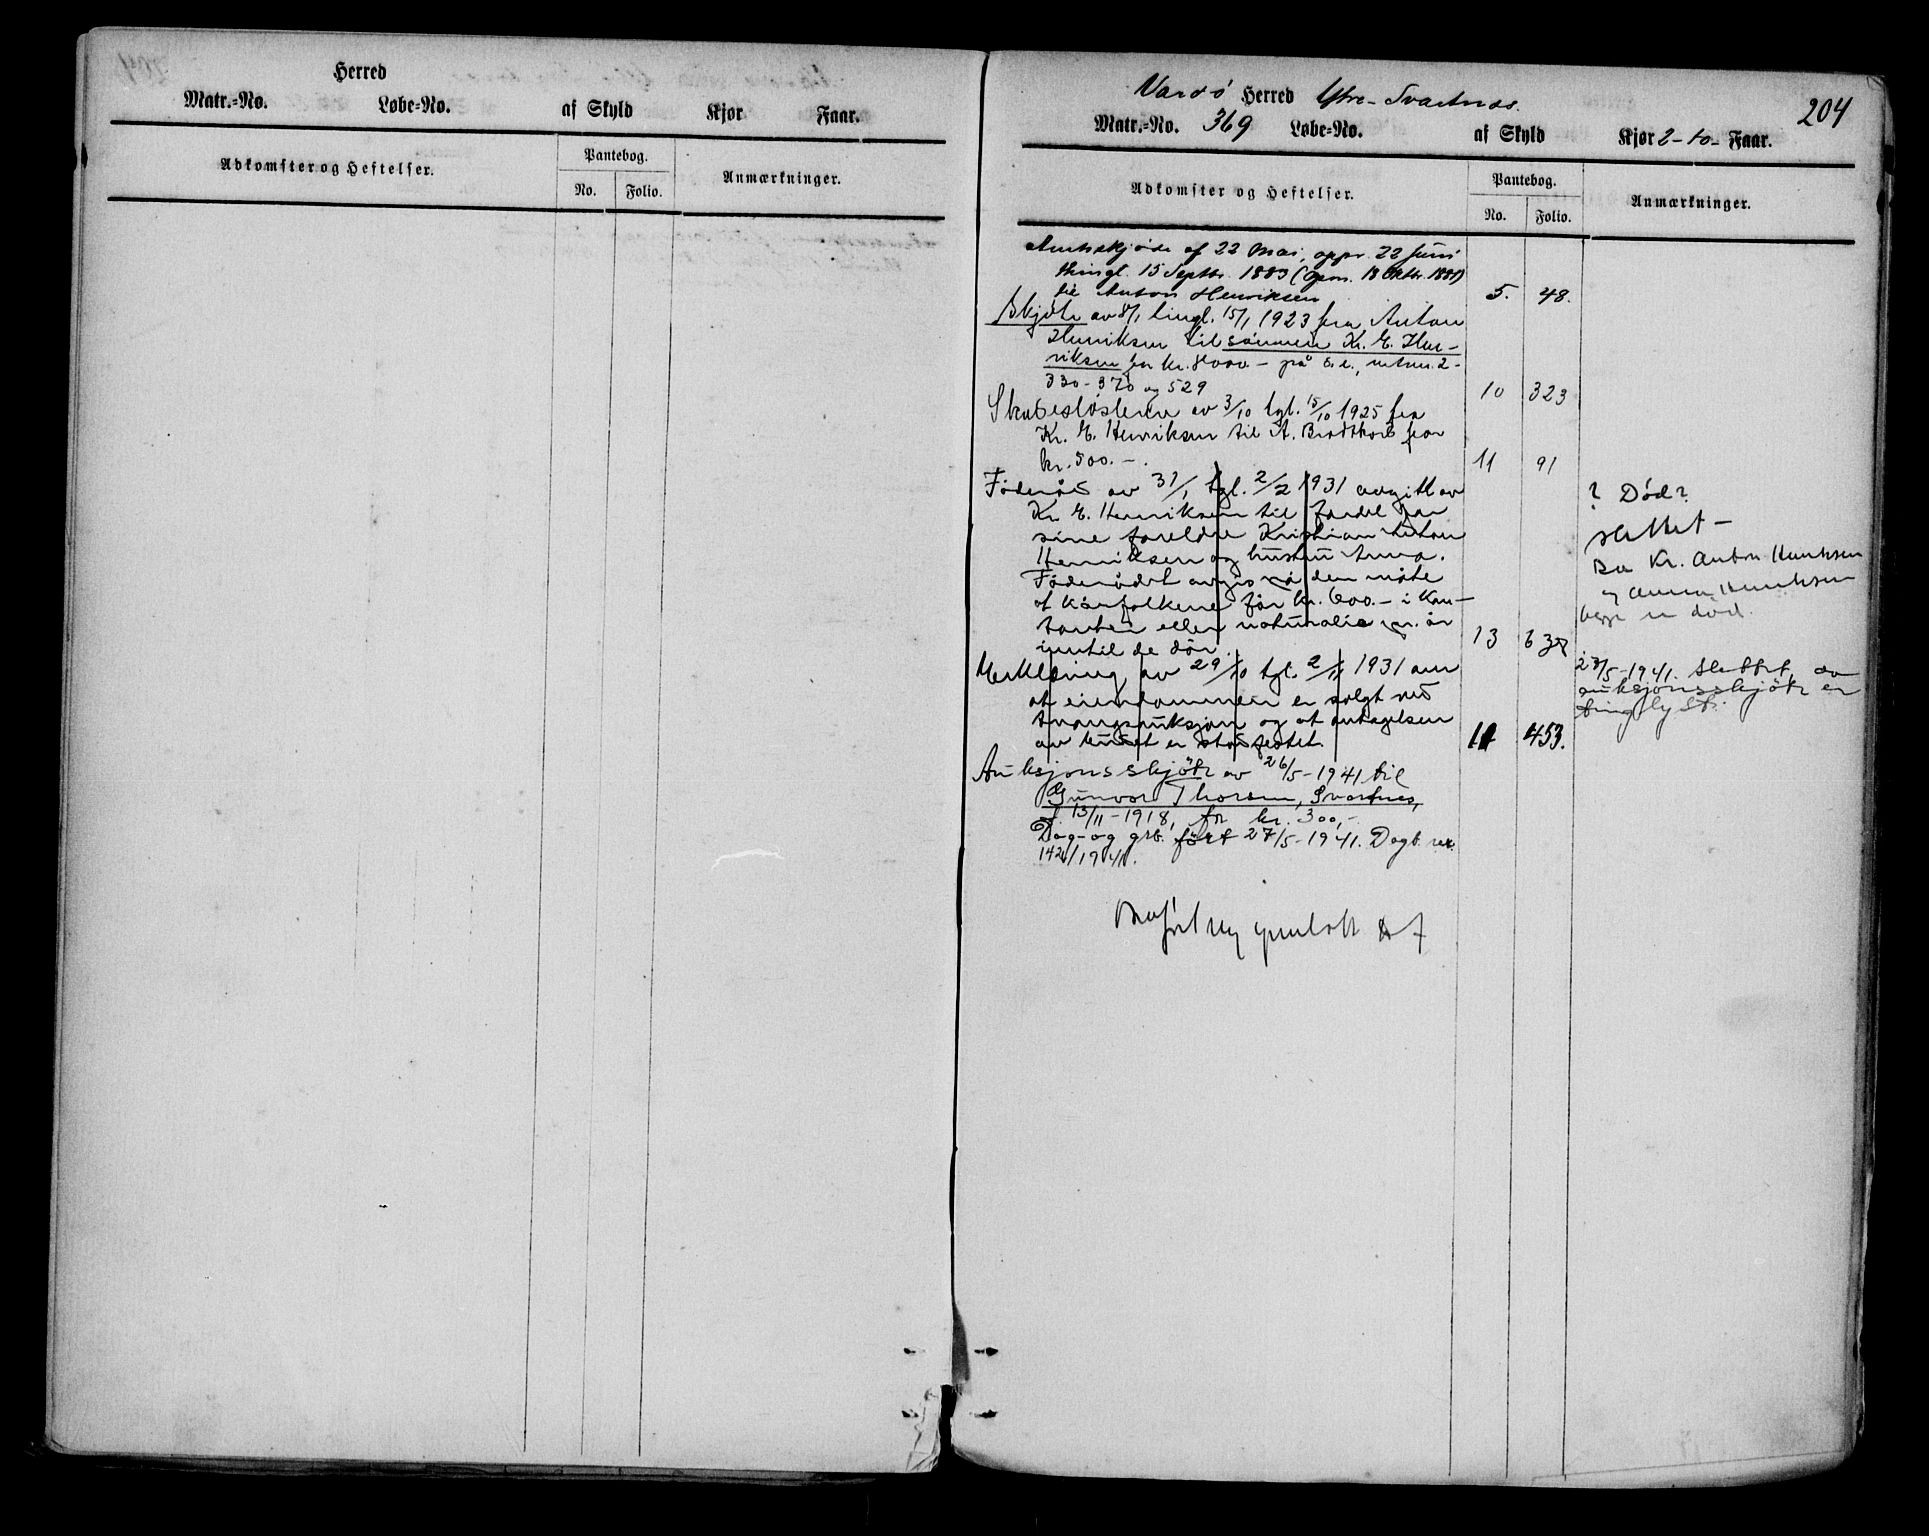 Herred
Matr.=No. Løbe=No. af Skyld Kjør Faar.
Adkomster og Heftelser. Pantebog. Anmærkninger.
No. Folio.
204
Vardø Herred Ytre-Svartnes.
Matr.=No. 369 Løbe=No. af Skyld Kjør 2-10- Faar.
Adkomster og Heftelser. Pantebog. Anmærkninger.
No. Folio.
Amtsskjøde af 22 Mai, appr. 22 Juni
thingl. 15 Septbr. 1883 18 Oktbr. 1881)
til Anton Henriksen 5. 48.
Skjøte av 8/1 tingl. 15/1 1923 fra Anton
Henriksen til sønnen Kr. E. Hen-
riksen for kr. 8000.- på d. e., mtnr. 2-
330-370 og 529 10 323
Skadesløsbrev av 3/10 tgl. 15/10 1925 fra
Kr. E. Henriksen til A. Brodtkorb for
kr. 500.-. 11 91
Føderåd av 31/1 tgl. 2/2 1931 avgitt av
Kr. E. Henriksen til fordel for
sine foreldre Kristian Anton
Henriksen og hustru Anna.
Føderådet avgis på den måte
at kårfolkene får kr. 600.- i kon-
tanter eller naturalia pr. år
inntil de dør. 13 638
? Død?
slettet -
Da Kr. Anton Henriksen
og Anna Henriksen
begge er død.
Erklæring av 29/10 tgl. 2/11 1931 om
at eiendommen er solgt ved
tvangsauksjon og at antagelsen
av budet er stadfestet. 14 453.
27/5-1941. Slettet, da
auksjonsskjøte er
tinglyst.
Auksjonsskjøte av 26/5-1941 til
Gunvor Thorsen, Svartnes,
f. 13/11-1918, for kr. 300,-.
Dag- og grb. ført 27/5-1941. Dagb. nr.
142/1941.